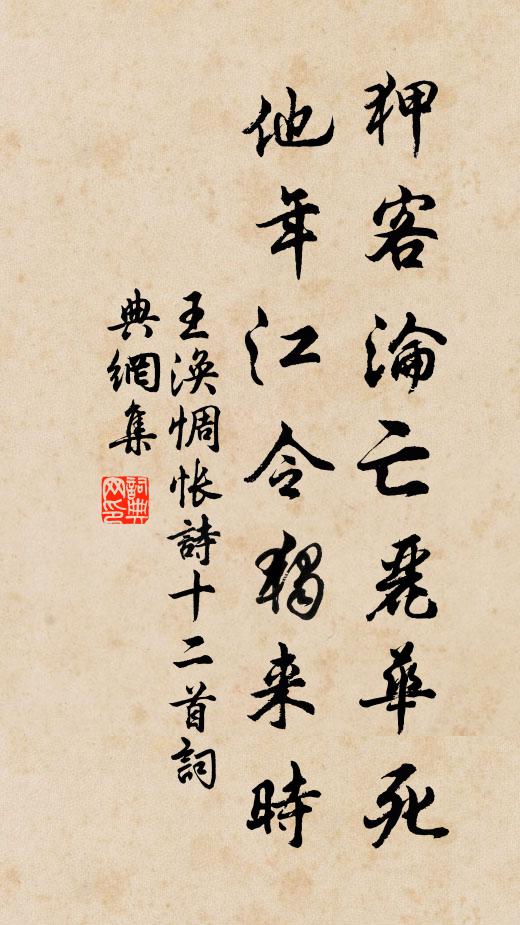 狎客淪亡麗華死
他年江令獨来時
王渙惆怅詩十二首詞
典網集
詞典网印